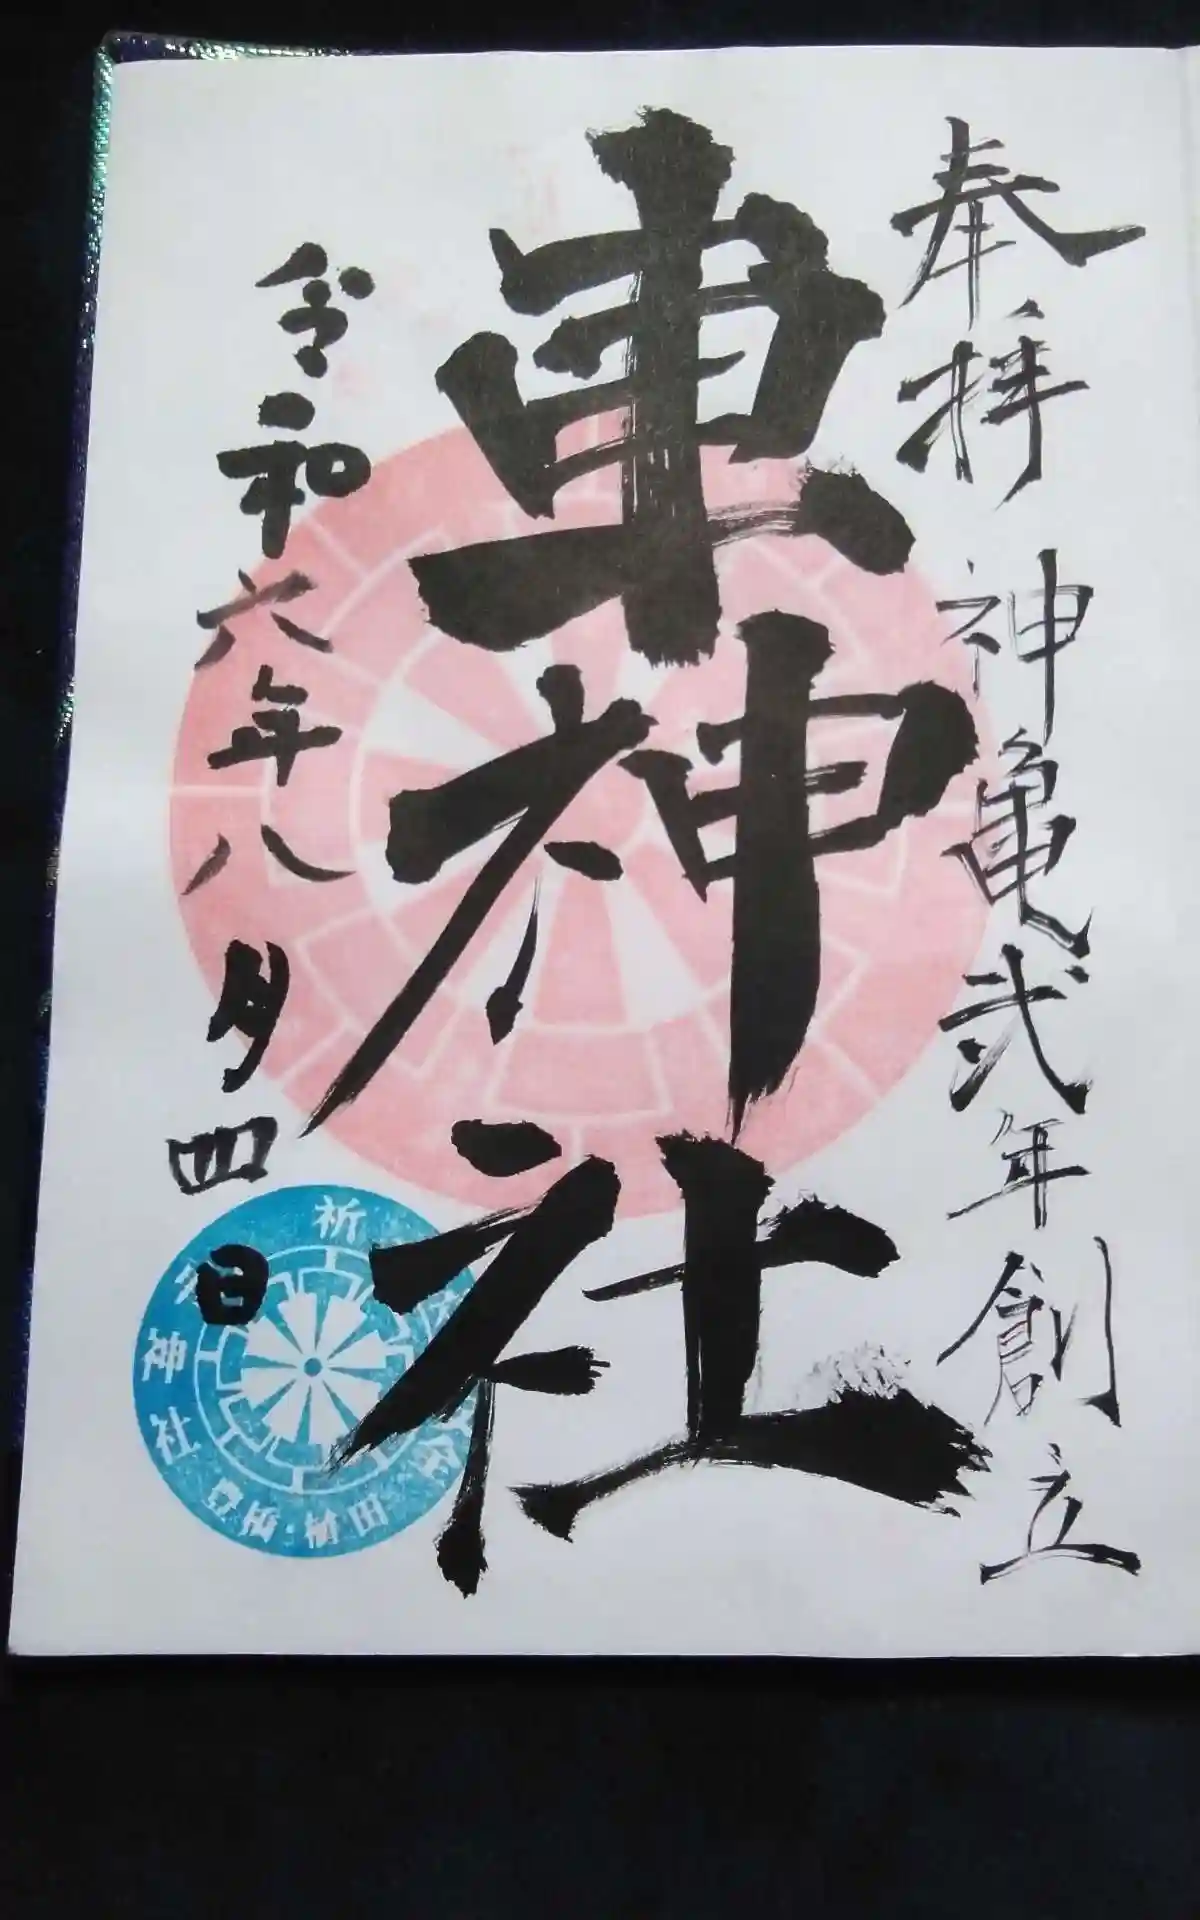 奉拝 神亀弐年創立
車神社
令和六年八月四日
祈
神社
豊橋・植田